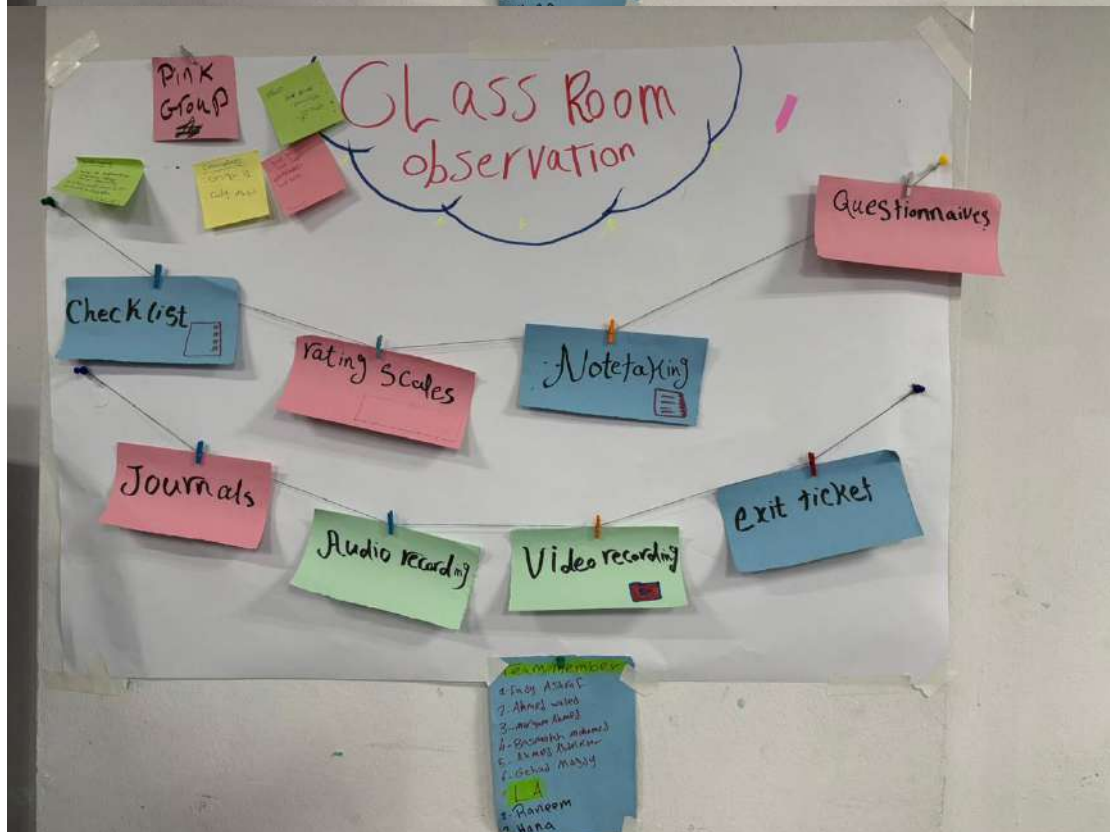 Pink
Group
CLass Room
observation
Questionnaires
Checklist
rating scales
Notetaking
Journals
Audio recording
Video recording
exit ticket
Team member
2- Ahmed waled
3- maryam Ahmed
4- Basmalah mohamed
5- Ahmed
6- Gehad Magdy
LA
1- Raneem
2- Hana